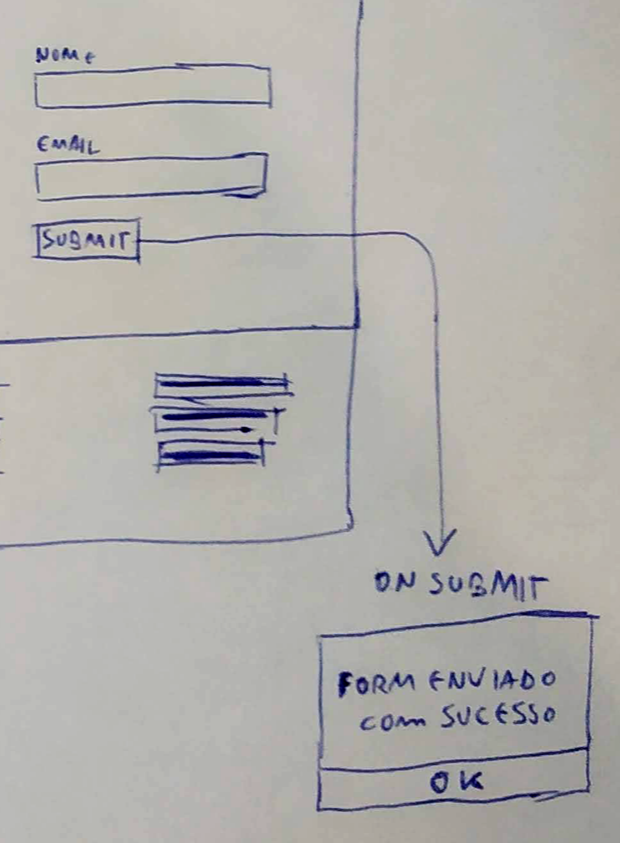 NOME
EMAIL
SUBMIT
ON SUBMIT
FORM ENVIADO
COM SUCESSO
OK